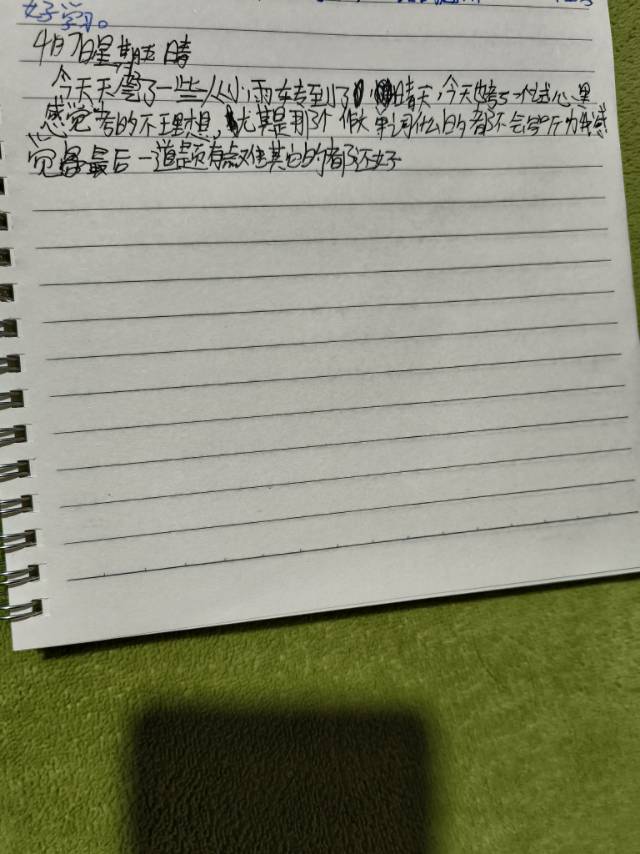 好学习。
4月7日星期 晴
今天天 了一些从小雨转到了晴天,今天考了一个试心里
感觉考的不理想,尤其是那个 做 单词什么的都不会 因为我感
觉最后一道题有点难其它的都还好